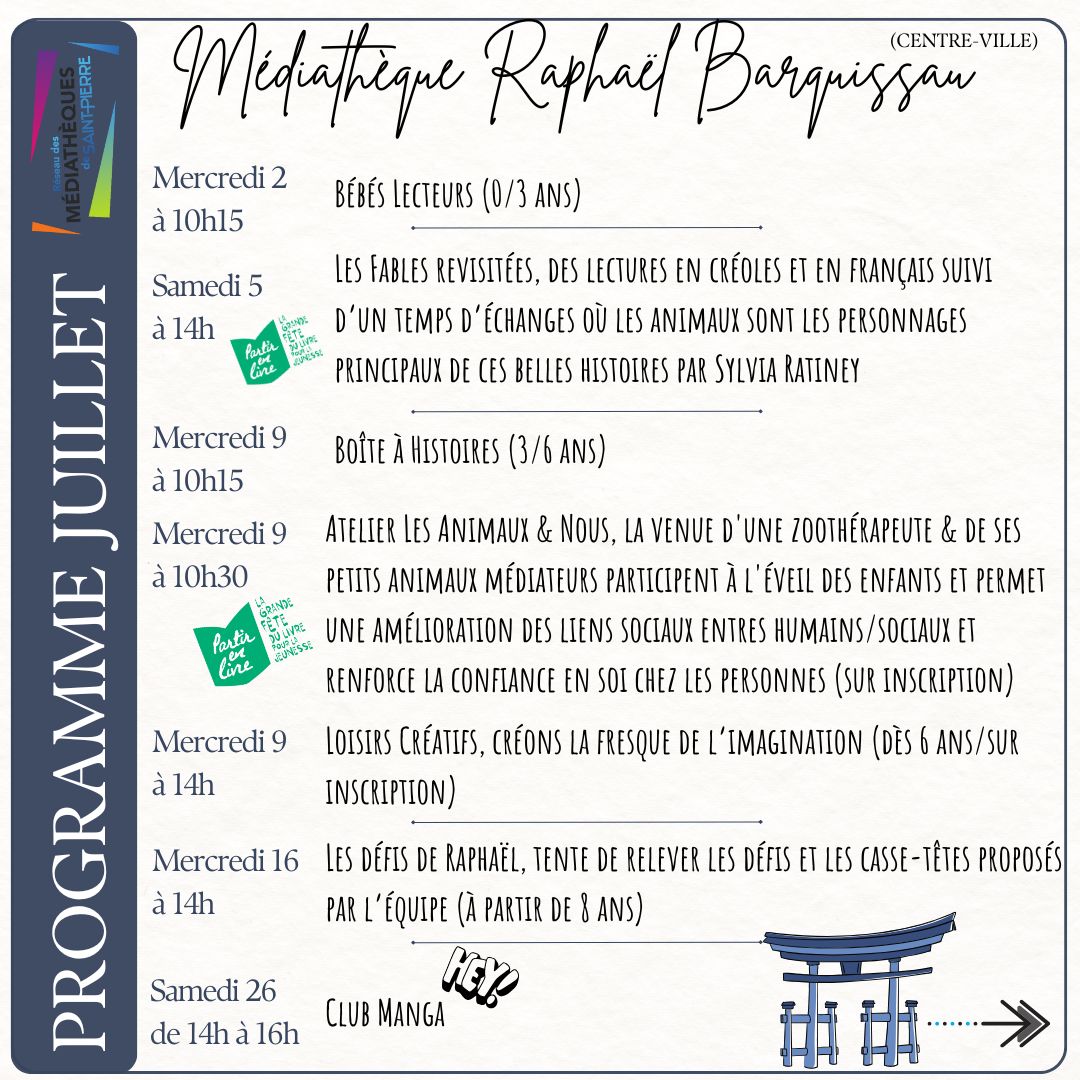 (CENTRE-VILLE)
Médiathèque Raphaël Barquissau
Réseau des
MÉDIATHÈQUES
de SAINT-PIERRE
PROGRAMME JUILLET
Mercredi 2
à 10h15
Bébés Lecteurs (0/3 ans)
Samedi 5
à 14h
Partir
en
livre
LA
GRANDE
FÊTE
DU LIVRE
POUR LA
JEUNESSE
Les Fables revisitées, des lectures en créoles et en français suivi
d’un temps d’échanges où les animaux sont les personnages
principaux de ces belles histoires par Sylvia Ratiney
Mercredi 9
à 10h15
Boîte à Histoires (3/6 ans)
Mercredi 9
à 10h30
Partir
en
livre
LA
GRANDE
FÊTE
DU LIVRE
POUR LA
JEUNESSE
Atelier Les Animaux & Nous, la venue d'une zoothérapeute & de ses
petits animaux médiateurs participent à l'éveil des enfants et permet
une amélioration des liens sociaux entres humains/sociaux et
renforce la confiance en soi chez les personnes (sur inscription)
Mercredi 9
à 14h
Loisirs Créatifs, créons la fresque de l’imagination (dès 6 ans/sur
inscription)
Mercredi 16
à 14h
Les défis de Raphaël, tente de relever les défis et les casse-têtes proposés
par l’équipe (à partir de 8 ans)
Samedi 26
de 14h à 16h
Club Manga
HEY!